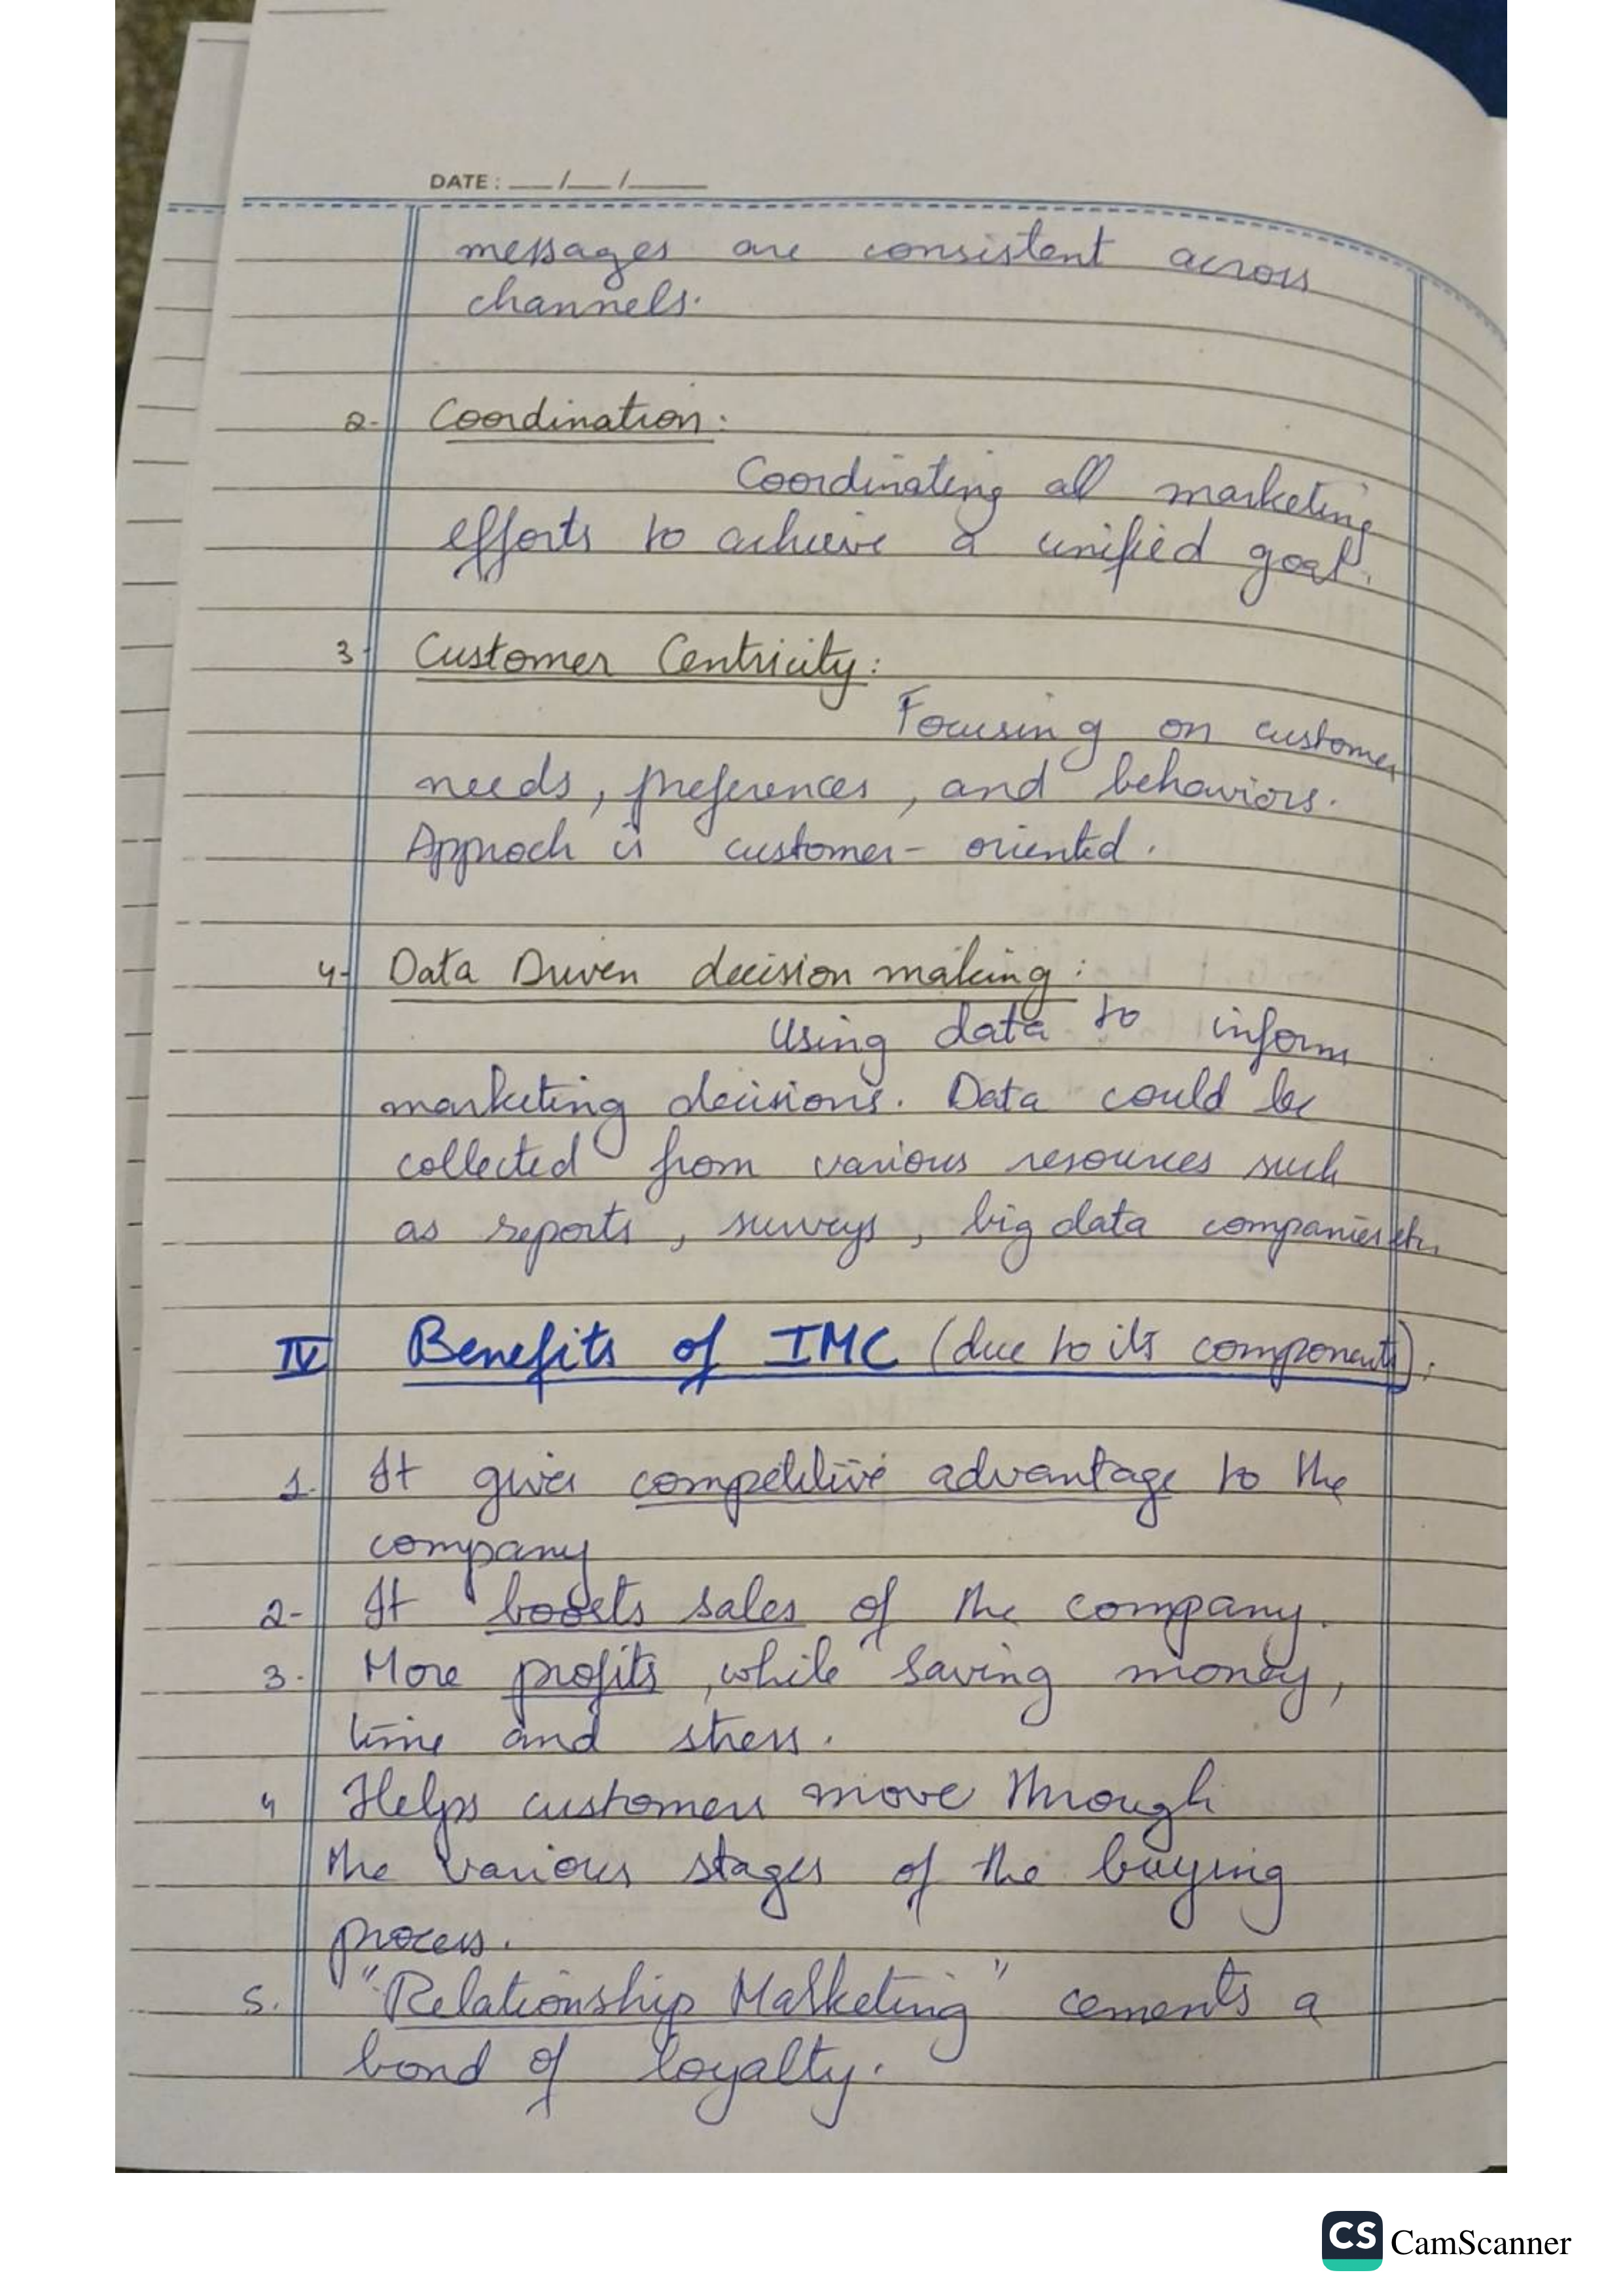 DATE: __/__/____
messages are consistent across
channels.
2- Coordination:
Coordinating all marketing
efforts to achieve a unified goal.
3- Customer Centricity:
Focusing on customer
needs, preferences, and behaviors.
Approch is customer-oriented.
4- Data Driven decision making:
Using data to inform
marketing decisions. Data could be
collected from various resources such
as reports, surveys, big data companies etc.
IV Benefits of IMC (due to its components):
1. It gives competitive advantage to the
company
2- It boosts sales of the company.
3. More profits, while saving money,
time and stress.
4 Helps customers move through
the various stages of the buying
process.
5. "Relationship Marketing" cements a
bond of loyalty.
CS CamScanner